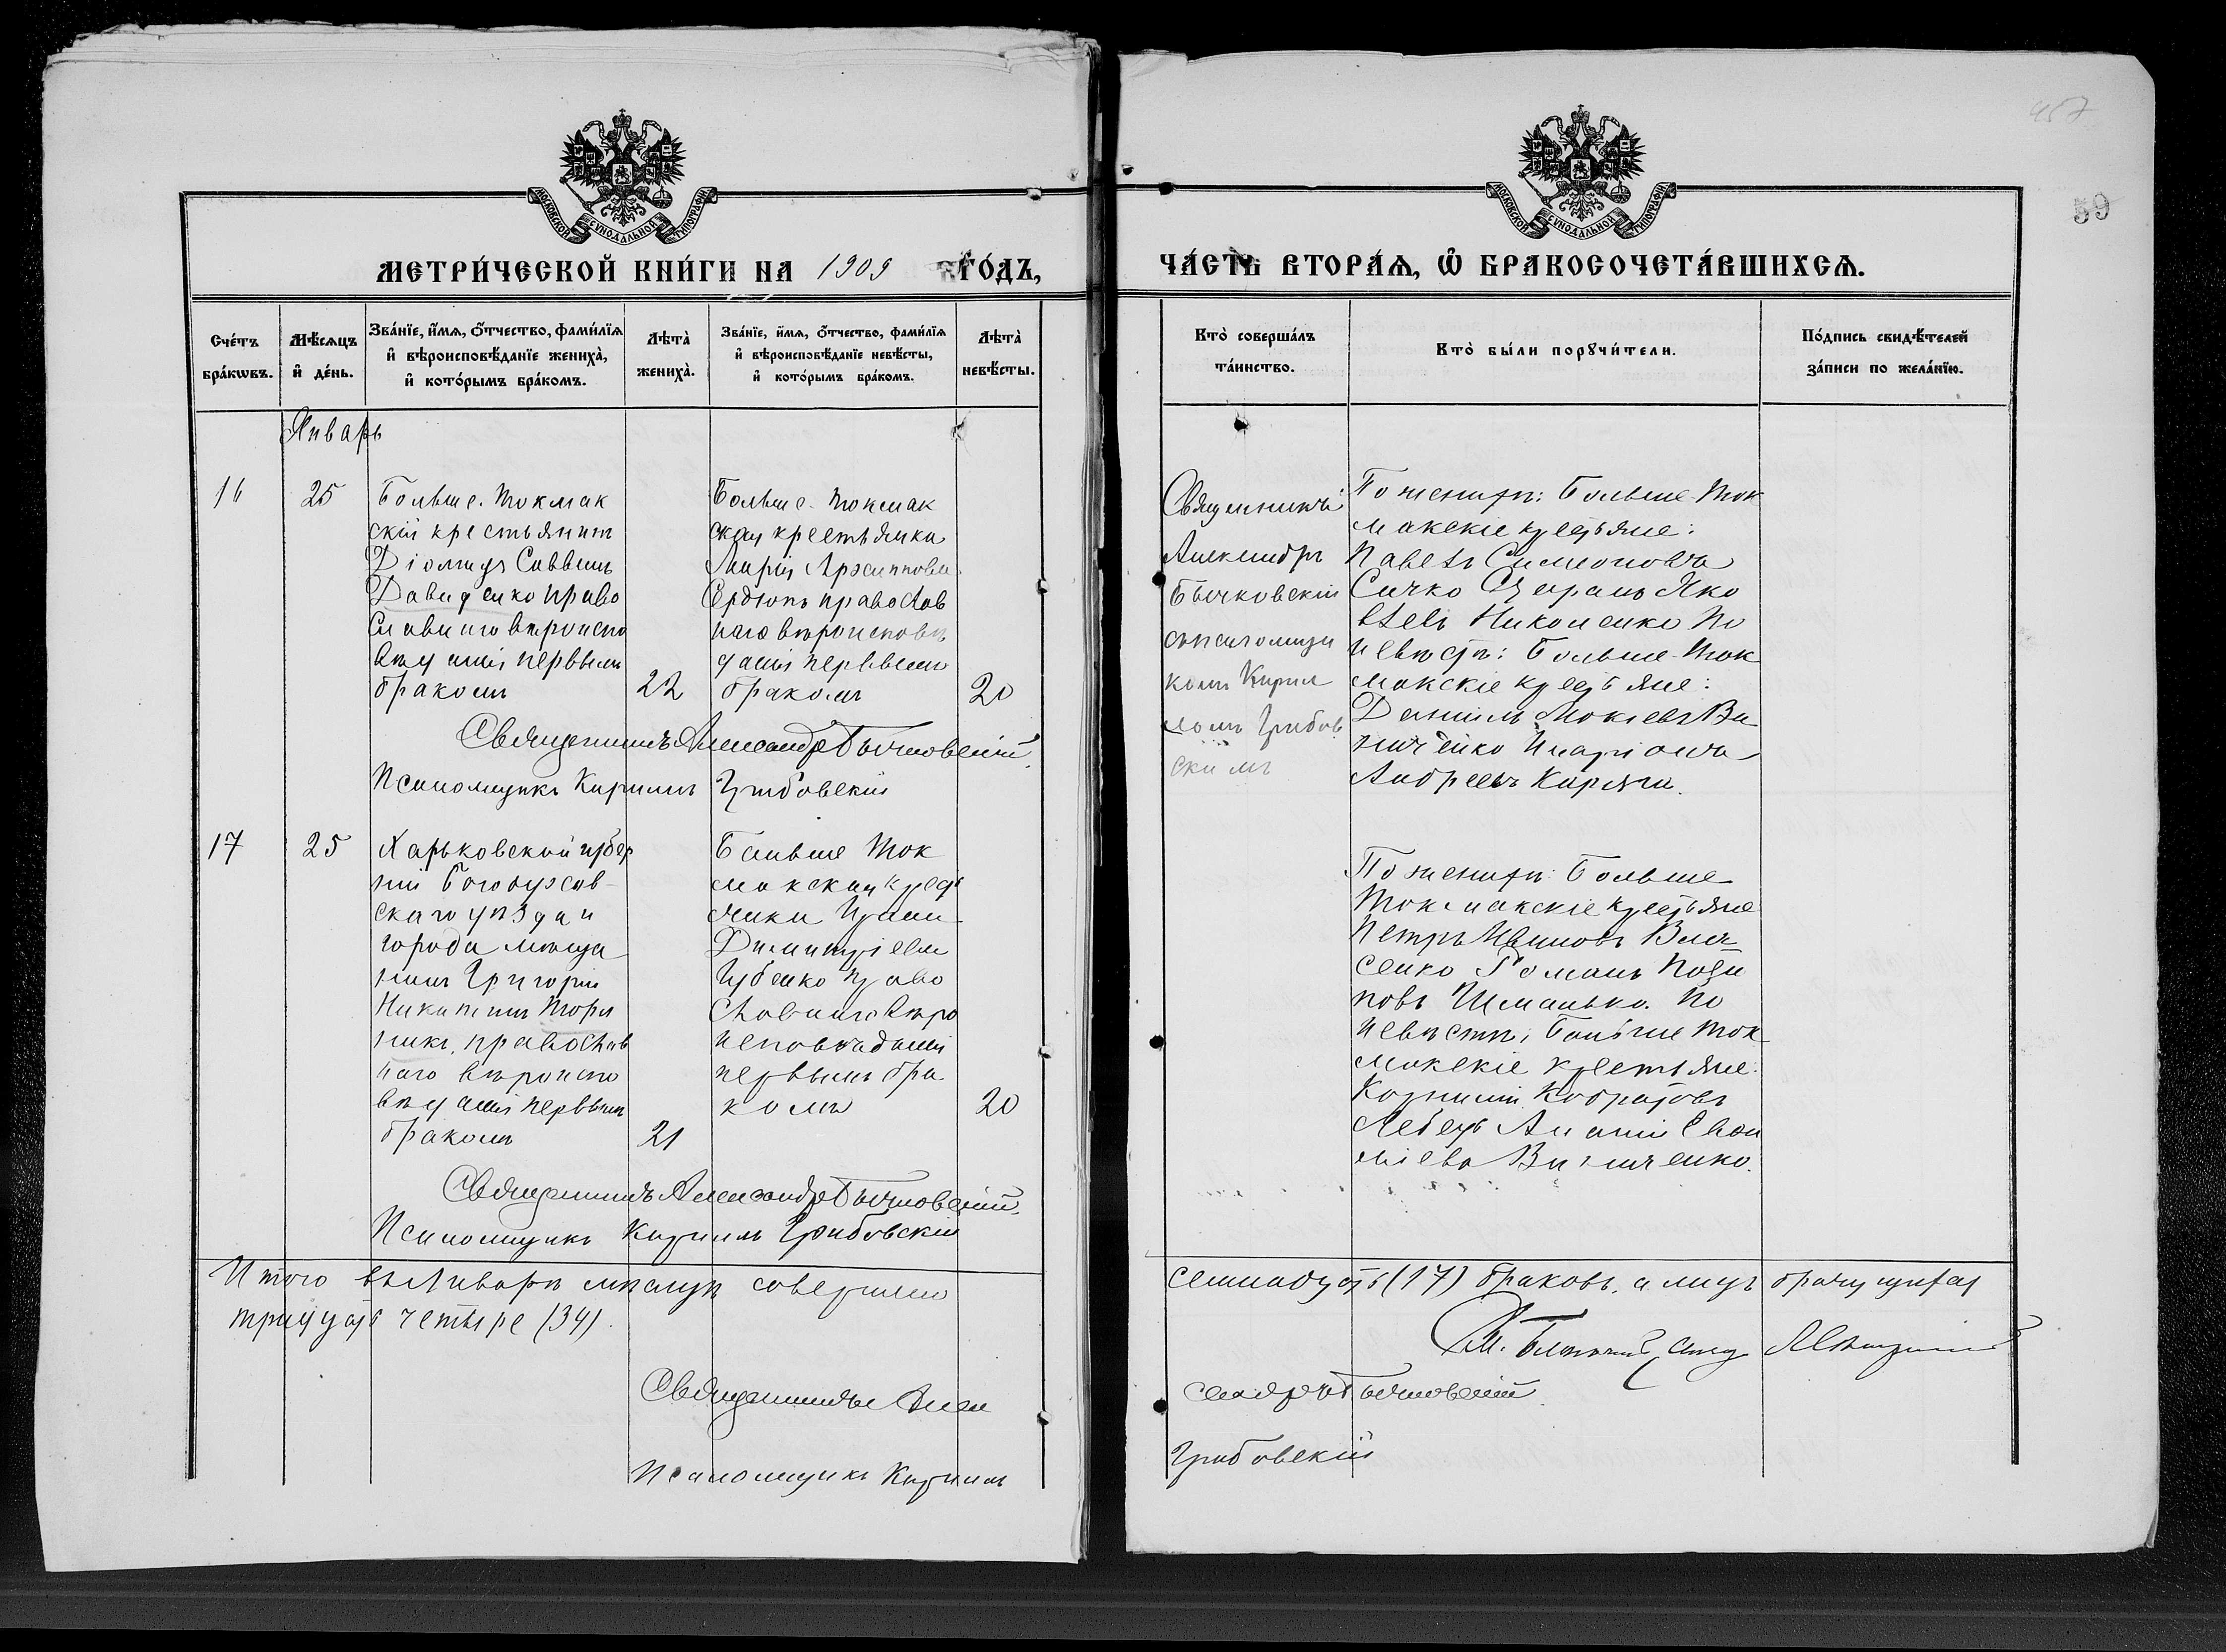 МОСКОВСКОЙ СѴНОДАЛЬНОЙ ТИПОГРАФІИ
МЕТРИ́ЧЕСКОЙ КНИ́ГИ НА 1909 ГО́ДЪ,
Сче́тъ бра́кѡвъ.
Мѣ́сяцъ и҆ де́нь.
Зва́нїе, и҆́мѧ, ѻ҆́тчество, фами́лїѧ
и҆ вѣроисповѣ́данїе жениха̀,
и҆ кото́рымъ бра́комъ.
Лѣта̀ жениха̀.
Зва́нїе, и҆́мѧ, ѻ҆́тчество, фами́лїѧ
и҆ вѣроисповѣ́данїе невѣ́сты,
и҆ кото́рымъ бра́комъ.
Лѣта̀ невѣ́сты.
Январь
16
25
Больше-Токмак
скій крестьянинъ
Діомидъ Саввинъ
Давиденко право
славнаго вѣроиспо
вѣданія первымъ
бракомъ
22
Больше-Токмак
ская крестьянка
Марія Архиппова
Сердюкъ православ
наго вѣроисповѣ
данія первымъ
бракомъ
20
Священникъ Александръ Бычковскій.
Псаломщикъ Кириллъ Грибовскій
17
25
Харьковской губер
ніи Богодухов-
скаго уѣзда и
города мѣща
нинъ Григорій
Никитинъ
православ
наго вѣроиспо
вѣданія первымъ
бракомъ
21
Больше Ток
макская кресть
янка
Димитріева
Губенко право
славнаго вѣро
исповѣданія
первымъ бра
комъ
20
Священникъ Александръ Бычковскій.
Псаломщикъ Кириллъ Грибовскій
Итого въ Январѣ мѣсяцѣ совершено
тридцать четыре (34).
Священникъ Алек
Псаломщикъ Кириллъ
457
59
МОСКОВСКОЙ СѴНОДАЛЬНОЙ ТИПОГРАФІИ
ЧА́СТЬ ВТОРА́Ѧ, Ѽ БРАКОСОЧЕТА́ВШИХСѦ.
Кто̀ соверша́лъ та́инство.
Кто̀ бы́ли порꙋчи́тели.
По́дпись свидѣ́телей за́писи по жела́нїю.
Священникъ
Александръ
Бычковскій
съ псаломщи
комъ Кирил
ломъ Грибов
скимъ
По женихѣ: Больше-Ток
макскіе крестьяне:
Павелъ Симеоновъ
Сичко Яко
влевъ Николенко По
невѣстѣ: Больше-Ток
макскіе крестьяне:
Даніилъ Мокіевъ Ви
ниченко Иларіонъ
Андреевъ Каряга.
По женихѣ: Больше
Токмакскіе крестьяне
Петръ Ивановъ Влас
сенко Романъ
повъ Шманько. По
невѣстѣ: Больше Ток
макскіе крестьяне:
Корнилій Кодратовъ
Лебедь Ананій
міевъ Винниченко.
семнадцать (17) браковъ, а лицъ
сандръ Бычковскій.
Грибовскій